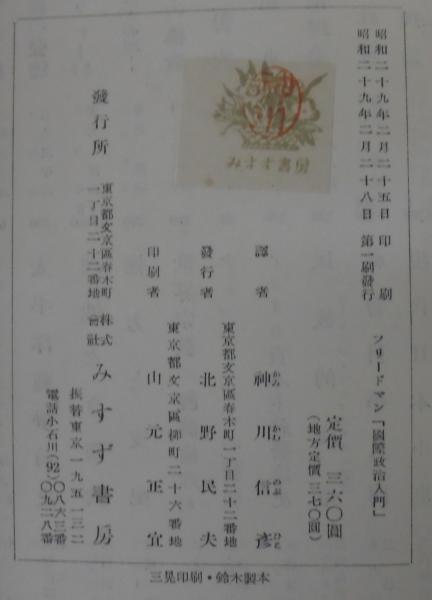 昭和二十九年二月二十五日 印刷
昭和二十九年二月二十八日 第一刷發行
フリードマン「國際政治入門」
定價 三六〇圓
（地方定價 三七〇圓）
みすず書房
譯者 神川信彦
かみ かわ のぶ ひこ
東京都文京區春木町一丁目二十二番地
發行者 北野民夫
東京都文京區柳町二十六番地
印刷者 山元正宜
發行所
東京都文京區春木町
一丁目二十二番地
株式會社 みすず書房
振替東京一九五一三二
電話小石川(92)〇八六三番
〇九二八番
三晃印刷・鈴木製本